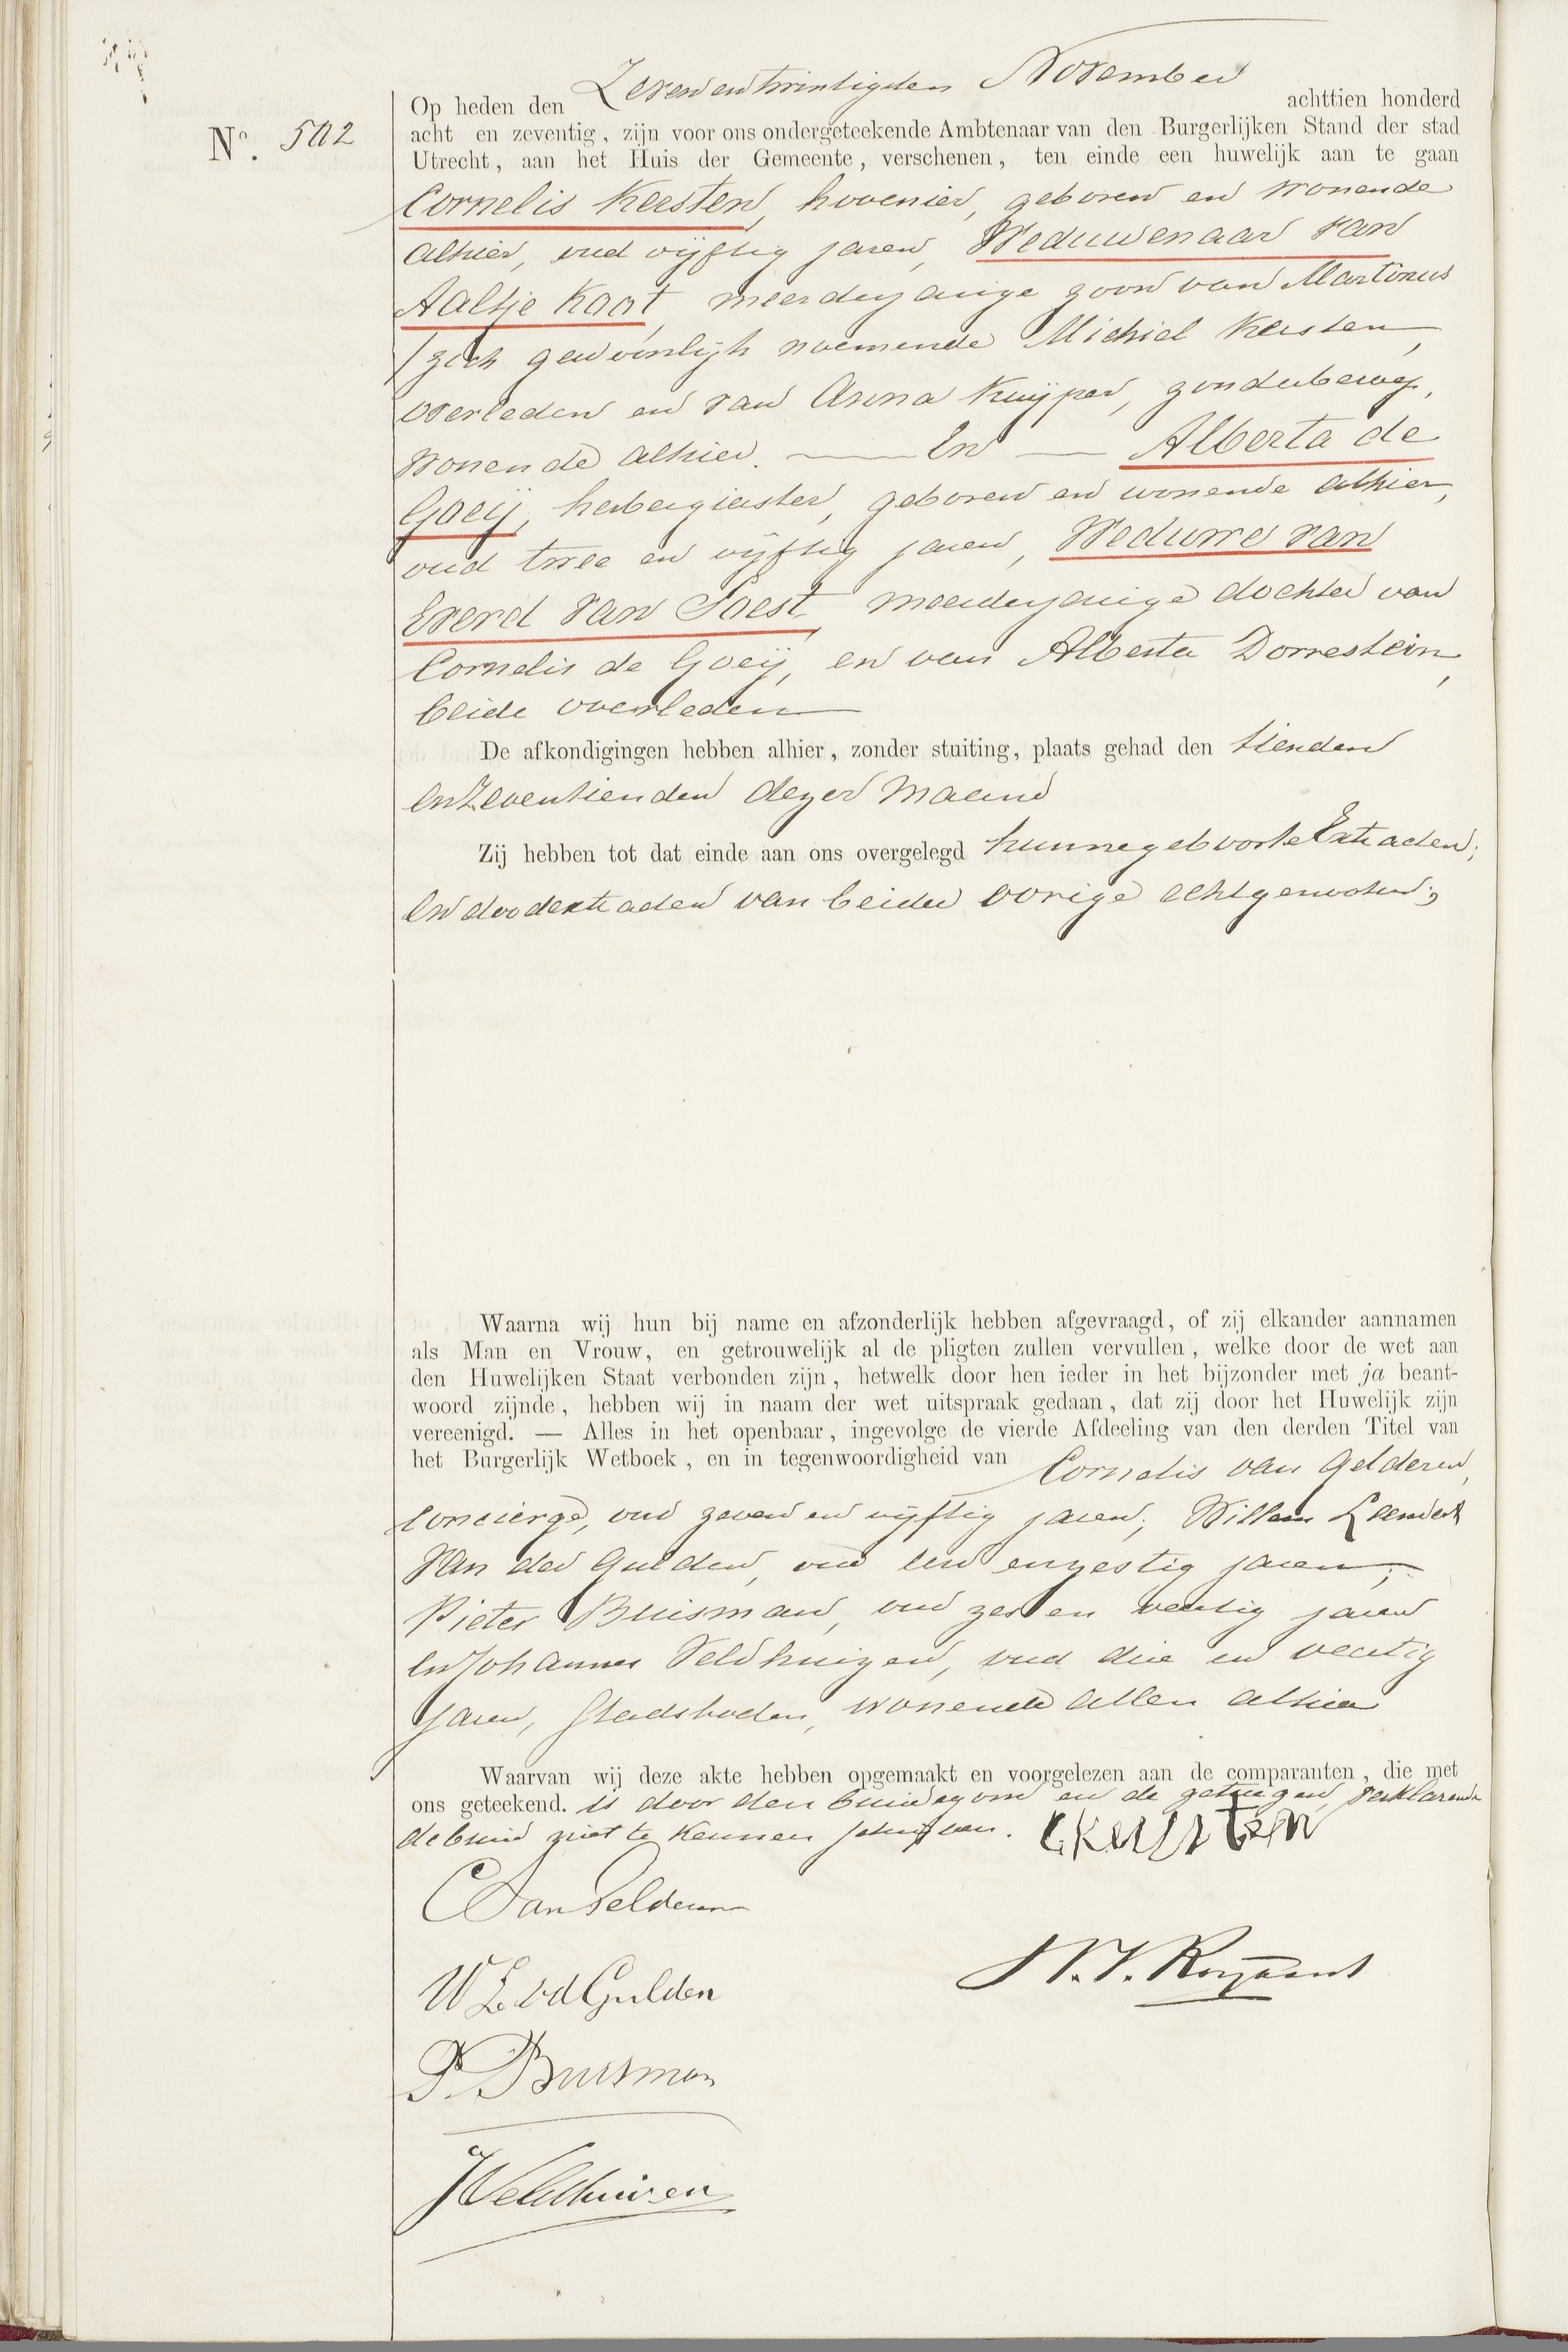 Op heden den Zevenentwintigsten November achttien honderd
Nº. 502
acht en zeventig, zijn voor ons ondergeteekende Ambtenaar van den Burgerlijken Stand der stad
Utrecht, aan het Huis der Gemeente, verschenen, ten einde een huwelijk aan te gaan
Cornelis Kersten, hovenier, geboren en wonende
alhier, oud vijftig jaren, Weduwenaar van
Aaltje Kaat, meerderjarige zoon van Martinus
zich gewoonlijk noemende Michiel Kersten,
overleden en van Anna Kuijper, zonder beroep,
wonende alhier. — En — Alberta de
Goeij, herbergierster, geboren en wonende alhier,
oud twee en vijftig jaren, Weduwe van
Everd van Soest, meerderjarige dochter van
Cornelis de Goeij, en van Alberta Dorrestein,
beide overleden
De afkondigingen hebben alhier, zonder stuiting, plaats gehad den tienden
en Zeventienden dezer Maand
Zij hebben tot dat einde aan ons overgelegd hunne geboorte Extracten;
en doodextracten van beider vorige echtgenooten;
Waarna wij hun bij name en afzonderlijk hebben afgevraagd, of zij elkander aannamen
als Man en Vrouw, en getrouwelijk al de pligten zullen vervullen, welke door de wet aan
den Huwelijken Staat verbonden zijn, hetwelk door hen ieder in het bijzonder met ja beant-
woord zijnde, hebben wij in naam der wet uitspraak gedaan, dat zij door het Huwelijk zijn
vereenigd. — Alles in het openbaar, ingevolge de vierde Afdeeling van den derden Titel van
het Burgerlijk Wetboek, en in tegenwoordigheid van Cornelis van Gelderen,
concierge, oud zeven en vijftig jaren; Willem Leendert
van der Gulden, oud een en zestig jaren;
Pieter Buisman, oud zes en veertig jaren
en Johannes Veldhuizen, oud drie en veertig
jaren, Stadsboden, wonende allen alhier
Waarvan wij deze akte hebben opgemaakt en voorgelezen aan de comparanten, die met
ons geteekend. is door den bruidegom en de getuigen, verklarende
de bruid niet te kennen schrijven. C Kersten
C Van Gelderen
W L vd Gulden
P. Buisman
J Veldhuizen